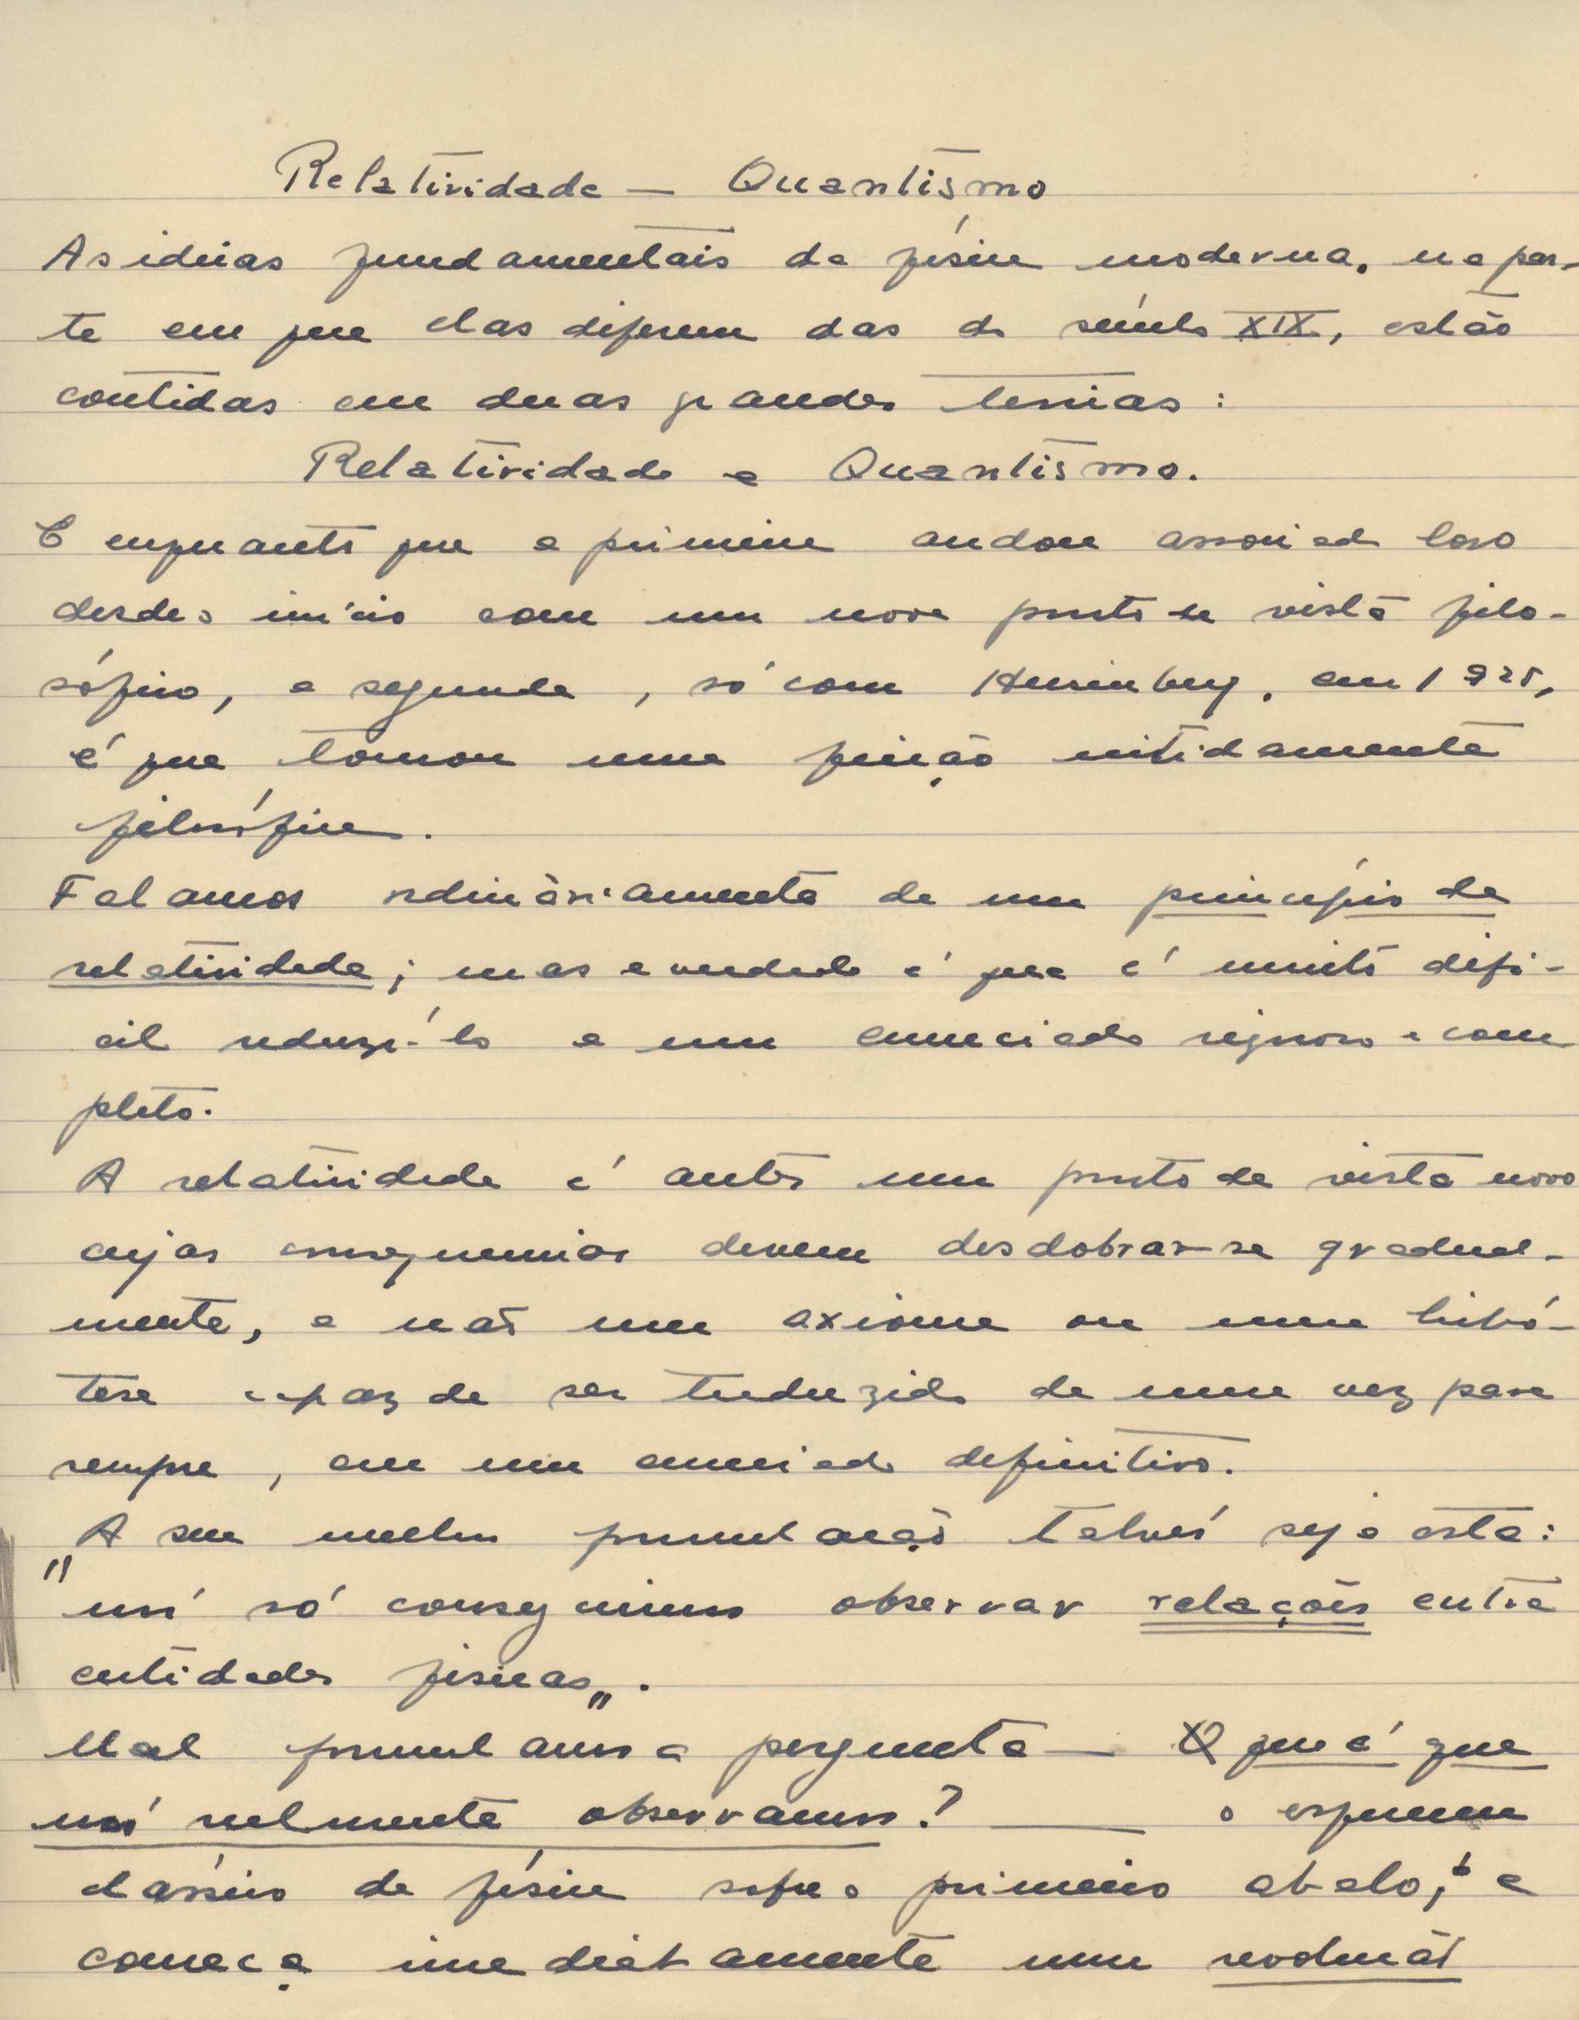 Relatividade — Quantismo
As ideias fundamentais da física moderna, na par-
te em que elas diferem das do século XIX, estão
contidas em duas grandes teorias:
Relatividade e Quantismo.
E enquanto que a primeira andou associada logo
desde o início com um novo ponto de vista filo-
sófico, a segunda, só com Heisenberg, em 1925,
é que tomou uma feição nitidamente
filosófica.
Falamos ordinàriamente de um princípio da
relatividade; mas a verdade é que é muito difí-
cil reduzi-lo a um enunciado rigoroso e com
pleto.
A relatividade é antes um ponto de vista novo
cujas consequencias devem desdobrar-se gradual-
mente, e não um axioma ou uma hipó-
tese capaz de ser traduzida de uma vez para
sempre, em um enunciado definitivo.
A sua melhor formulação talvez seja esta:
"nós só conseguimos observar relações entre
entidades físicas".
Mal formulamos a pergunta — O que é que
nós realmente observamos? — o esquema
clássico da física sofre o primeiro abalo, e
começa imediatamente uma revolução